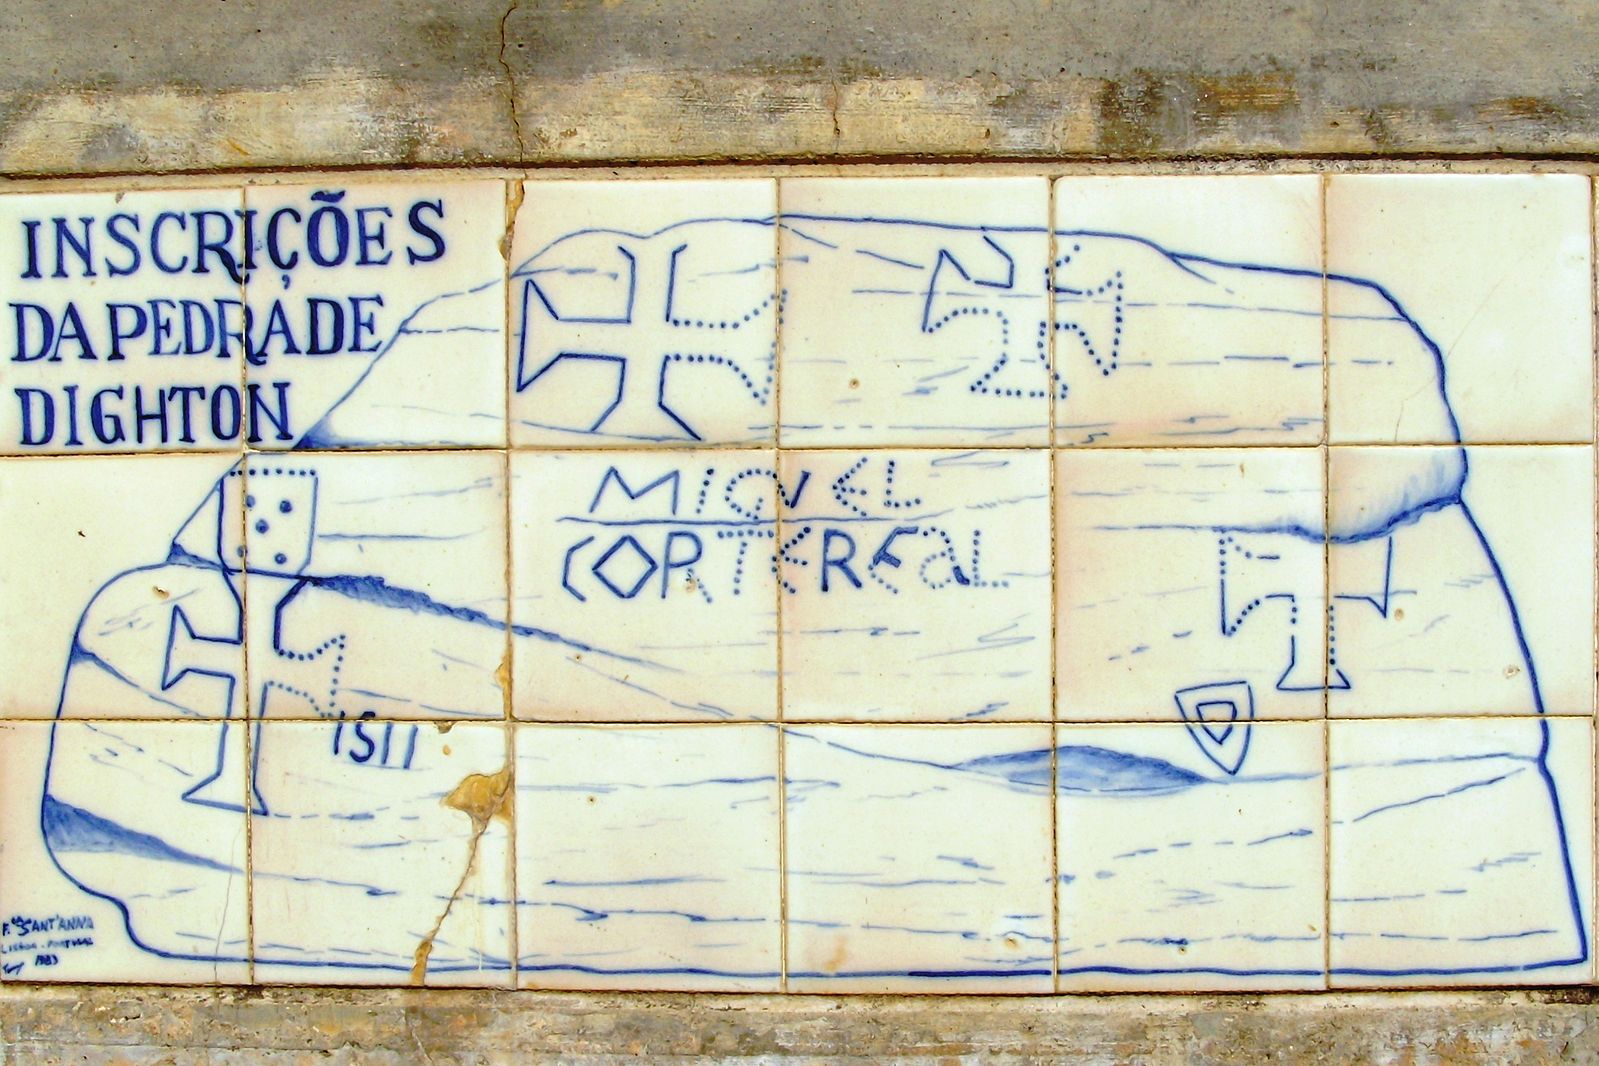 INSCRIÇÕES
DA PEDRA DE
DIGHTON
MIGVEL
CORTEREAL
1511
F.ca SANT'ANNA
LISBOA - PORTUGAL
1983